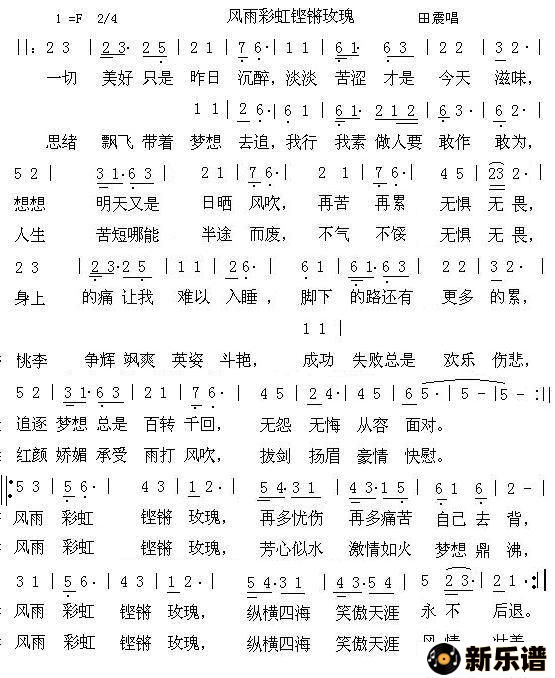 风雨彩虹铿锵玫瑰
1 =F 2/4 田震唱
||: 2 3 | 2 3· 2 5 | 2 1 | 7 6· | 2 1 | 6 1· 6 3 | 2 2 | 3 2· |
一切 美好 只是 昨日 沉醉，淡淡 苦涩 才是 今天 滋味，
1 1 | 2 6· | 6 1 | 6 1· 2 1 2 | 6 3· | 6 2· |
思绪 飘飞 带着 梦想 去追，我行 我素 做人要 敢作 敢为，
5 2 | 3 1· 6 3 | 2 1 | 7 6· | 2 1 | 7 6· | 4 5 | 23 2· |
想想 明天又是 日晒 风吹， 再苦 再累 无惧 无畏，
人生 苦短哪能 半途 而废， 不气 不馁 无惧 无畏，
2 3 | 2 3· 2 5 | 1 1 | 2 6· | 6 1 | 6 1· 6 3 | 2 2 | 3 2· |
身上 的痛 让我 难以 入睡， 脚下 的路还有 更多 的累，
1 1 |
桃李 争辉 飒爽 英姿 斗艳， 成功 失败总是 欢乐 伤悲，
5 2 | 3 1· 6 3 | 2 1 | 7 6· | 4 5 | 2 4· | 4 5 | 6 5· | 5 - | 5 - :||
追逐 梦想 总是 百转 千回， 无怨 无悔 从容 面对。
红颜 娇媚 承受 雨打 风吹， 拔剑 扬眉 豪情 快慰。
||: 5 3 | 5 6· | 4 3 | 1 2· | 5 4· 3 1 | 4 3· 1 5 | 6 1 6 | 2 - |
风雨 彩虹 铿锵 玫瑰， 再多忧伤 再多痛苦 自己 去 背，
风雨 彩虹 铿锵 玫瑰， 芳心似水 激情如火 梦想 鼎 沸，
3 1 | 5 6· | 4 3 | 1 2· | 5 4· 3 1 | 4 3· 2 1 | 5 2 3· | 1 - :||
风雨 彩虹 铿锵 玫瑰， 纵横四海 笑傲天涯 永 不 后退。
风雨 彩虹 铿锵 玫瑰， 纵横四海 笑傲天涯
新乐谱